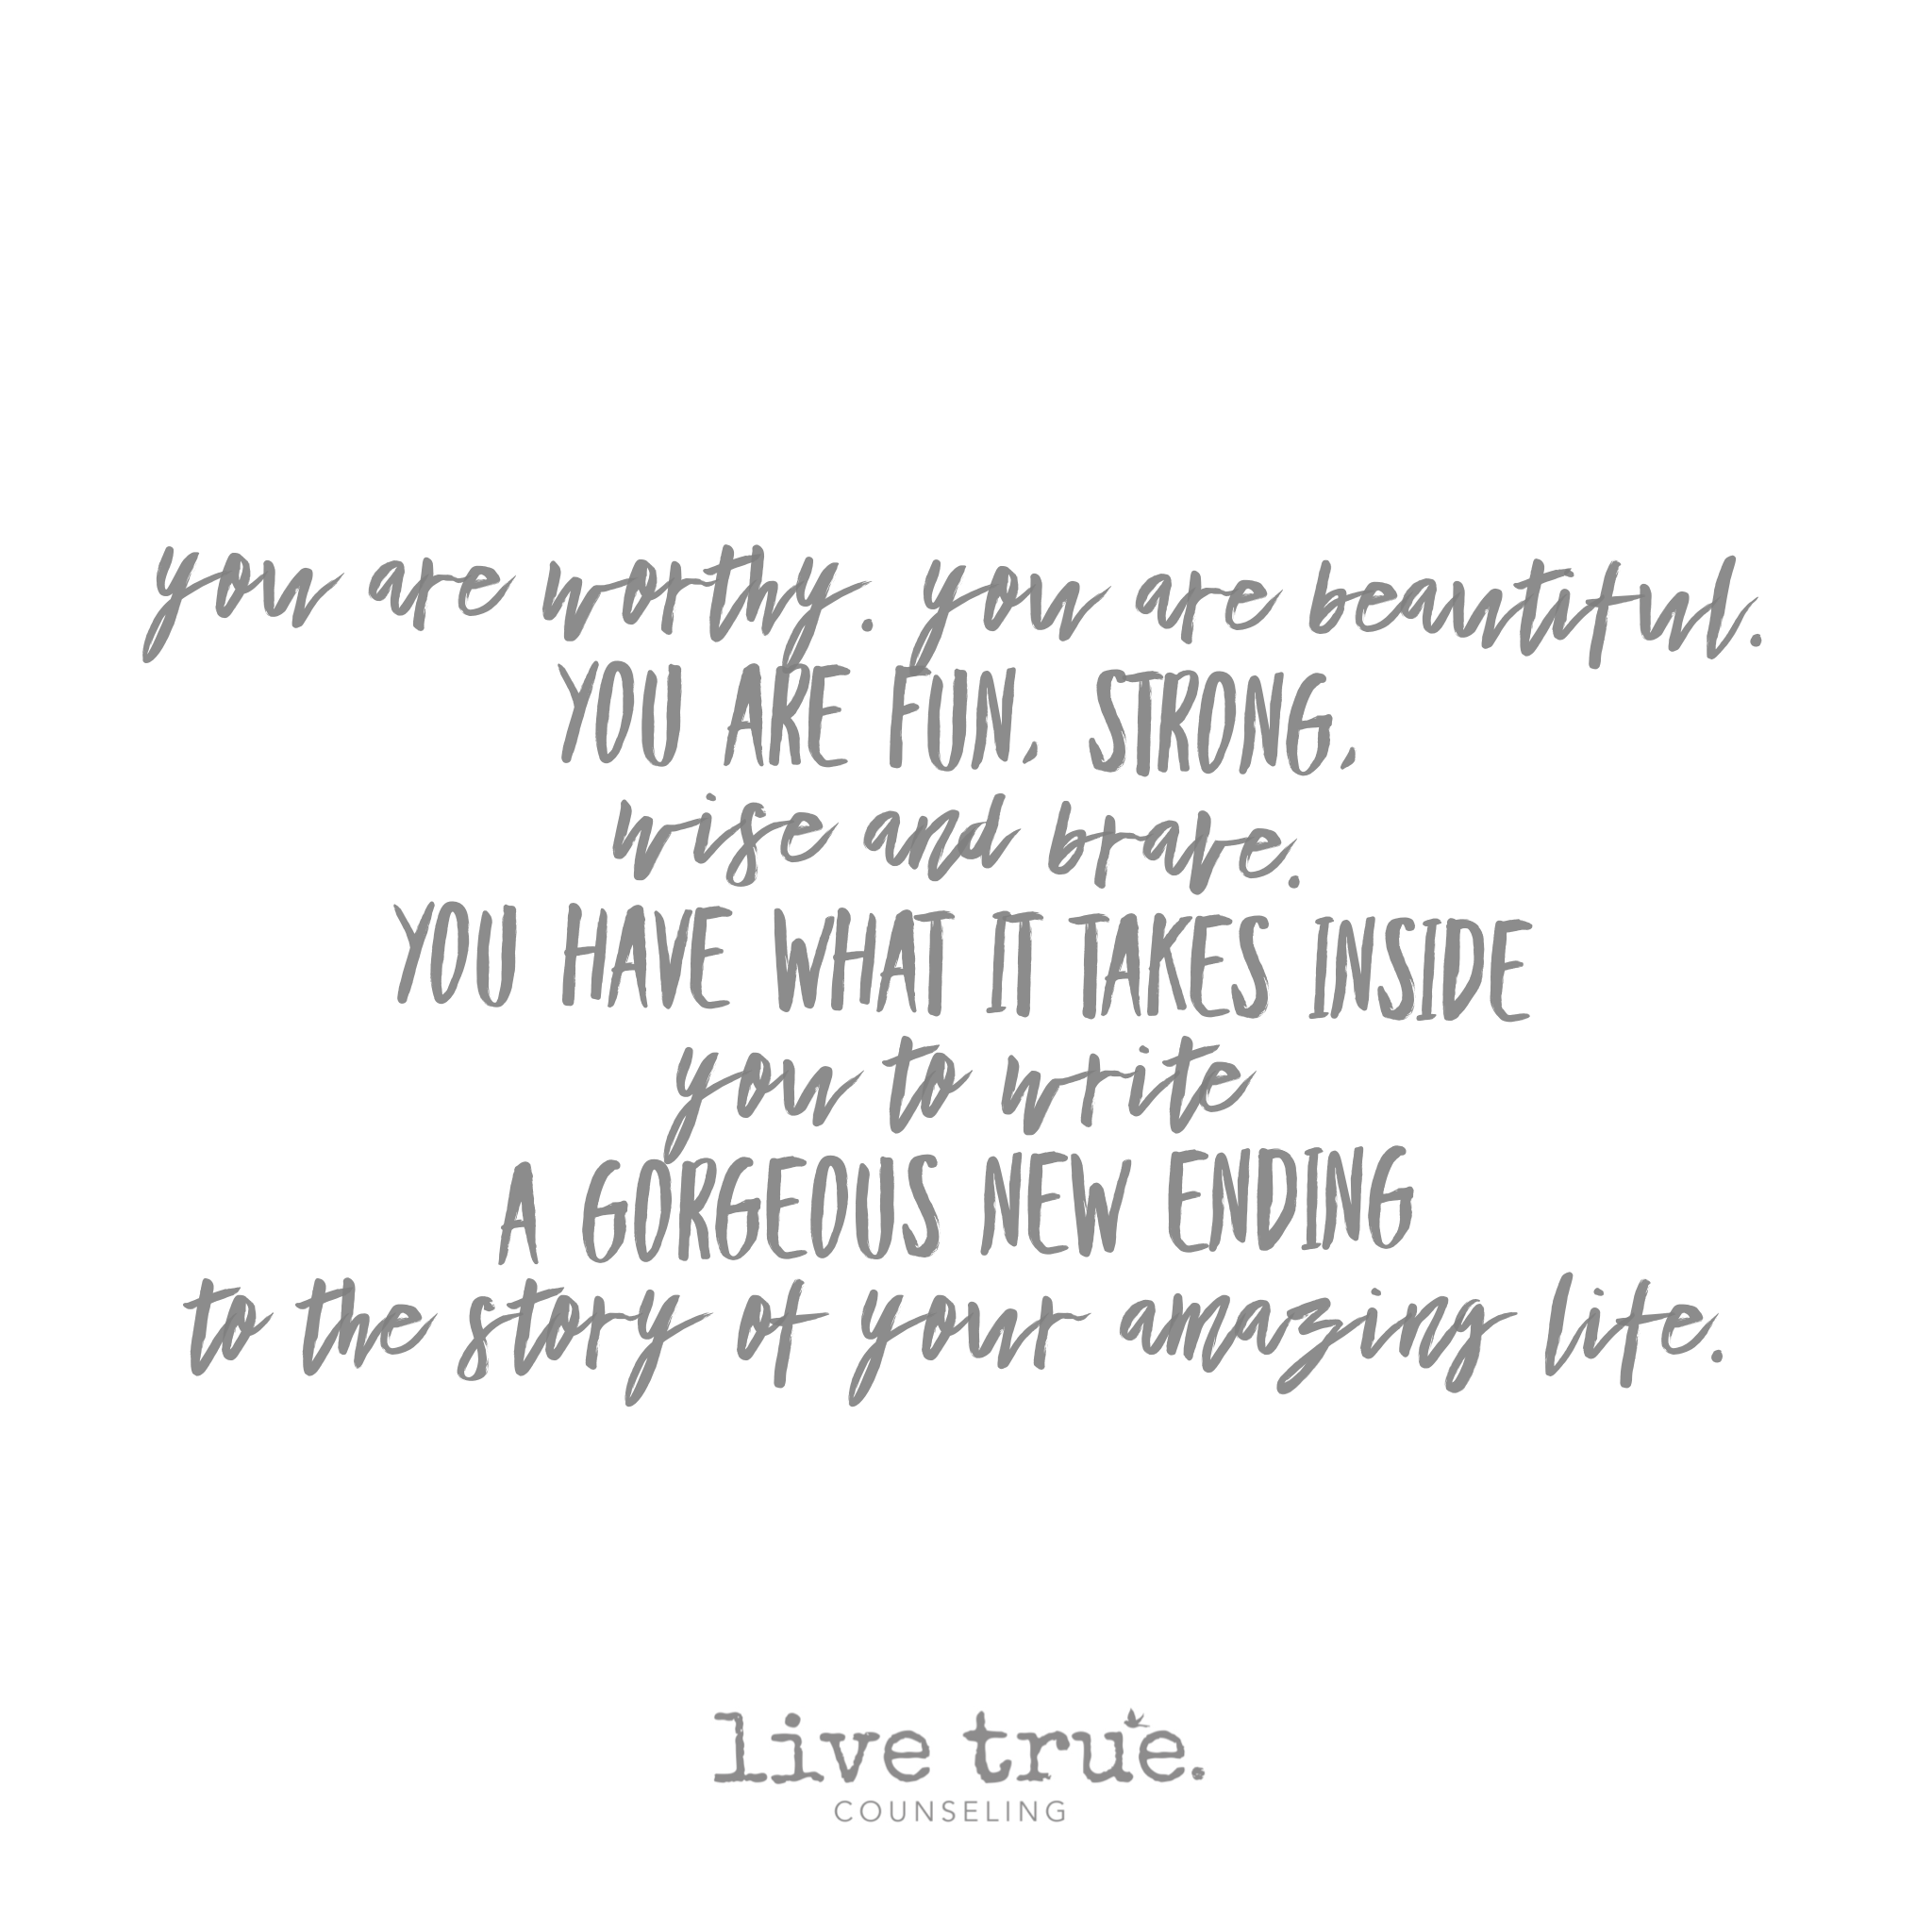 you are worthy. you are beautiful.
YOU ARE FUN, STRONG,
wise and brave.
YOU HAVE WHAT IT TAKES INSIDE
you to write
A GORGEOUS NEW ENDING
to the story of your amazing life.
live true.
COUNSELING